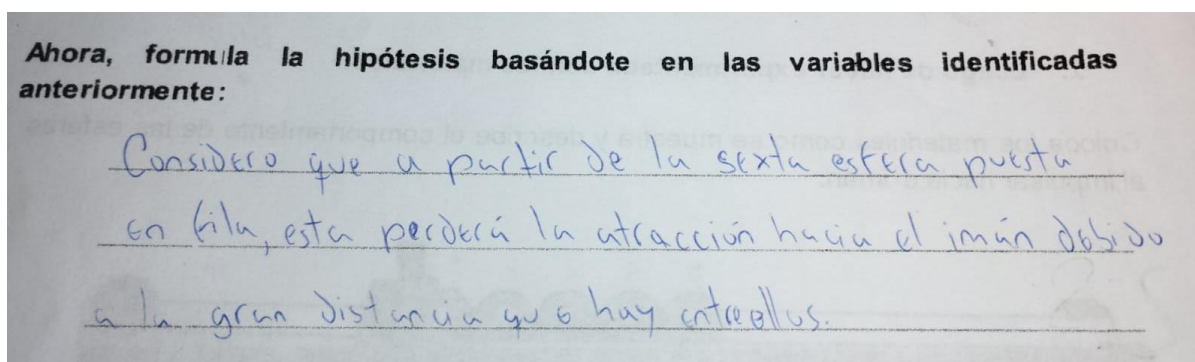 Ahora, formula la hipótesis basándote en las variables identificadas
anteriormente:
Considero que a partir de la sexta esfera puesta
en fila, esta perderá la atracción hacia el imán debido
a la gran distancia que hay entre ellos.